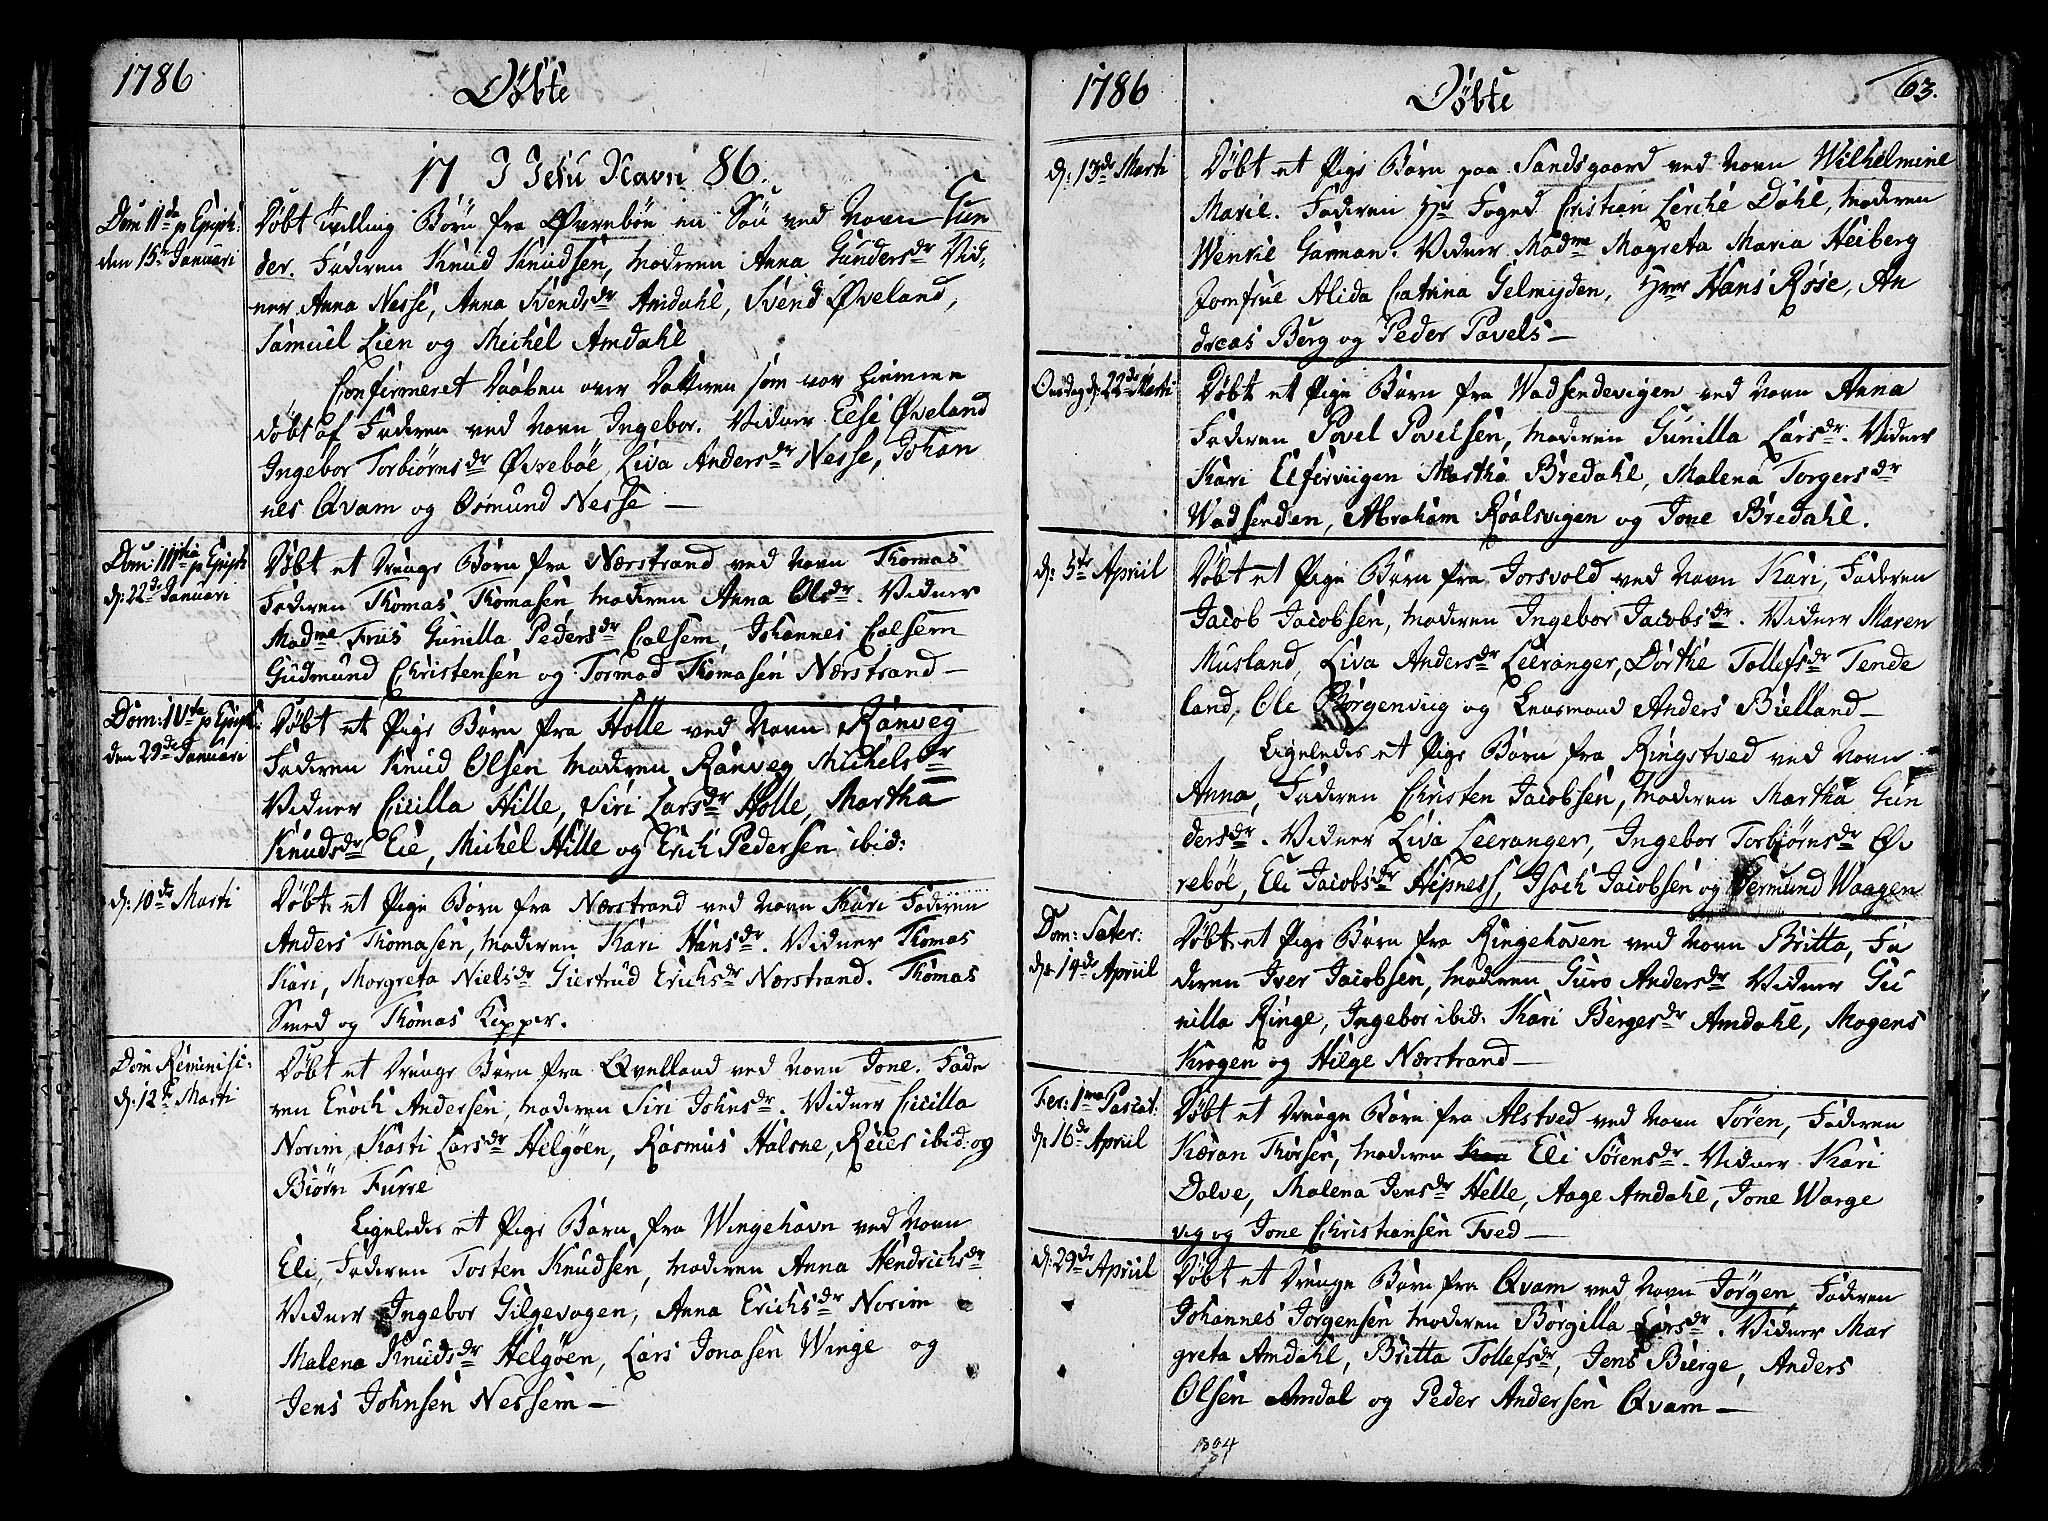 1786
Døbte
17 I Jesu Navn 86.
Dom 11da p Epiph:
den 15de Januari
Døbt tvilling Børn fra Øvrebøe en Søn ved Navn Gun
der. Faderen Knud Knudsen, Moderen Anna Gundersdr Vid,,
ner Anna Nesse, Anna Svendsdr Amdahl, Svend Øveland,
Samuel Lien og Michel Amdahl
Confirmeret Daaben over Datteren som var hiemme
døbt af Faderen ved Navn Ingebor. Vidner Else Øveland
Ingebor Torbiørnsdr Øvrebøe, Liva Andersdr Nesse, Johan
nes Qvam og Osmund Nesse —
Dom: 111tia p Epiph
d: 22de Januari
Døbt et Drenge Børn fra Nærstrand ved Navn Thomas
Faderen Thomas Thomasen, Moderen Anna Olsdr. Vidner
Madme Friis Gunilla Pedersdr Calsem, Johannes Calsem
Gudmund Christensen og Tormod Thomasen Nærstrand —
Dom: 1Vta p Epiph:
den 29de Januari
Døbt et Pige Børn fra Hølle ved Navn Ranveg
Faderen Knud Olsen Moderen Ranveg Michelsdr
Vidner Cicilla Hille, Siri Larsdr Hølle, Martha
Knudsdr Eie, Michel Hille og Erich Pedersen ibid:
d: 10de Marti
Døbt et Pige Børn fra Nærstrand ved Navn Kari Faderen
Anders Thomasen, Moderen Kari Hansdr. Vidner Thomas
Kari, Morgreta Nielsdr Giertrud Erichsdr Nærstrand. Thomas
Smed og Thomas Kipper.
Dom Reminisi:
d: 12te Marti
Døbt et Drenge Børn fra Qvelland ved Navn Jone. Fade
ren Enoch Andersen, Moderen Siri Johnsdr. Vidner Cicilla
Norim, Kasti Larsdr Helgøen, Rasmus Halsne, Reier ibid: og
Biørn Furre
Ligeledes et Pige Børn fra Wingehavn ved Navn
Eli, Faderen Tosten Knudsen, Moderen Anna Hendrichsdr
Vidner Ingebor Gilgevagen, Anna Erichsdr Norim
Malena Knudsdr Helgøen, Lars Jonasen Winge og
Jens Johnsen Nessem —
1786
Døbte
63.
d: 13de Marti
Døbt et Pige Børn paa Sandsgaard ved Navn Wilhelmine
Marie. Faderen Hr Foged Cristian Lerche Dahl, Moderen
Wenkie Garman. Vidner Madme Magreta Maria Heiberg
Jomfrue Alida Catrina Gelmyden, Hrr Hans Røse, An
dreas Berg og Peder Pavels —
Onsdag d: 22de Marti
Døbt et Pige Børn fra Wadsendevigen ved Navn Anna
Faderen Povel Povelsen, Moderen Gunilla Larsdr. Vidner
Kari Elfersvigen Martha Bredahl, Malena Torgersdr
Wadsenden, Abraham Roalsvigen og Jone Bredahl.
d: 5te Apriil
Døbt et Pige Børn fra Jorsvold ved Navn Kari, Faderen
Jacob Jacobsen, Moderen Ingebor Jacobsdr. Vidner Maren
Musland, Liva Andersdr Leeranger, Dorthe Tollefsdr Tende
land, Ole Børgenviig og Lensmand Anders Bielland —
Ligeledes et Pige Børn fra Ringstved ved Navn
Anna, Faderen Christen Jacobsen, Moderen Martha Gun
dersdr. Vidner Liva Leeranger, Ingebor Torbiørnsdr Øv
rebøe, Eli Jacobsdr Hipness, Isach Jacobsen og Germund Waagen
Dom: Pater:
d: 14de Apriil
Døbt et Pige Børn fra Ringehaven ved Navn Britta, Fa
deren Iver Jacobsen, Moderen Guro Andersdr Vidner Gu
nilla Ringe, Ingebor ibid: Kari Bergesdr Amdahl, Mogens
Krogen og Hilge Nærstrand —
Fer: 1ma Pascat:
d: 16de Apriil
Døbt et Drenge Børn fra Alstved ved Navn Søren, Faderen
Kæran Thorsen, Moderen Eli Sørensdr. Vidner Kari
Dalve, Malena Jensdr Helle, Aage Amdahl, Jone Warge
vig og Jone Christiansen Tved —
d: 29de Apriil
Døbt et Drenge Børn fra Qvam ved Navn Jørgen, Faderen
Johannes Jorgensen Moderen Børgilla Larsdr. Vidner Mar
greta Amdahl, Britta Tollefsdr, Jens Bierge, Anders
Olsen Amdal og Peder Andersen Qvam —